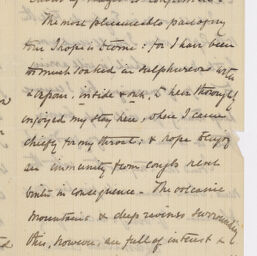 The most pleasurable part of my
tour I hope is to come: for I have been
so much soaked in sulphureous water
& vapour, inside & out, & have thoroughly
enjoyed my stay here, where I came
chiefly for my throat; & hope to enjoy
an immunity from coughs next
winter in consequence. The volcanic
mountains & deep ravines surrounding
this, however, are full of interest &